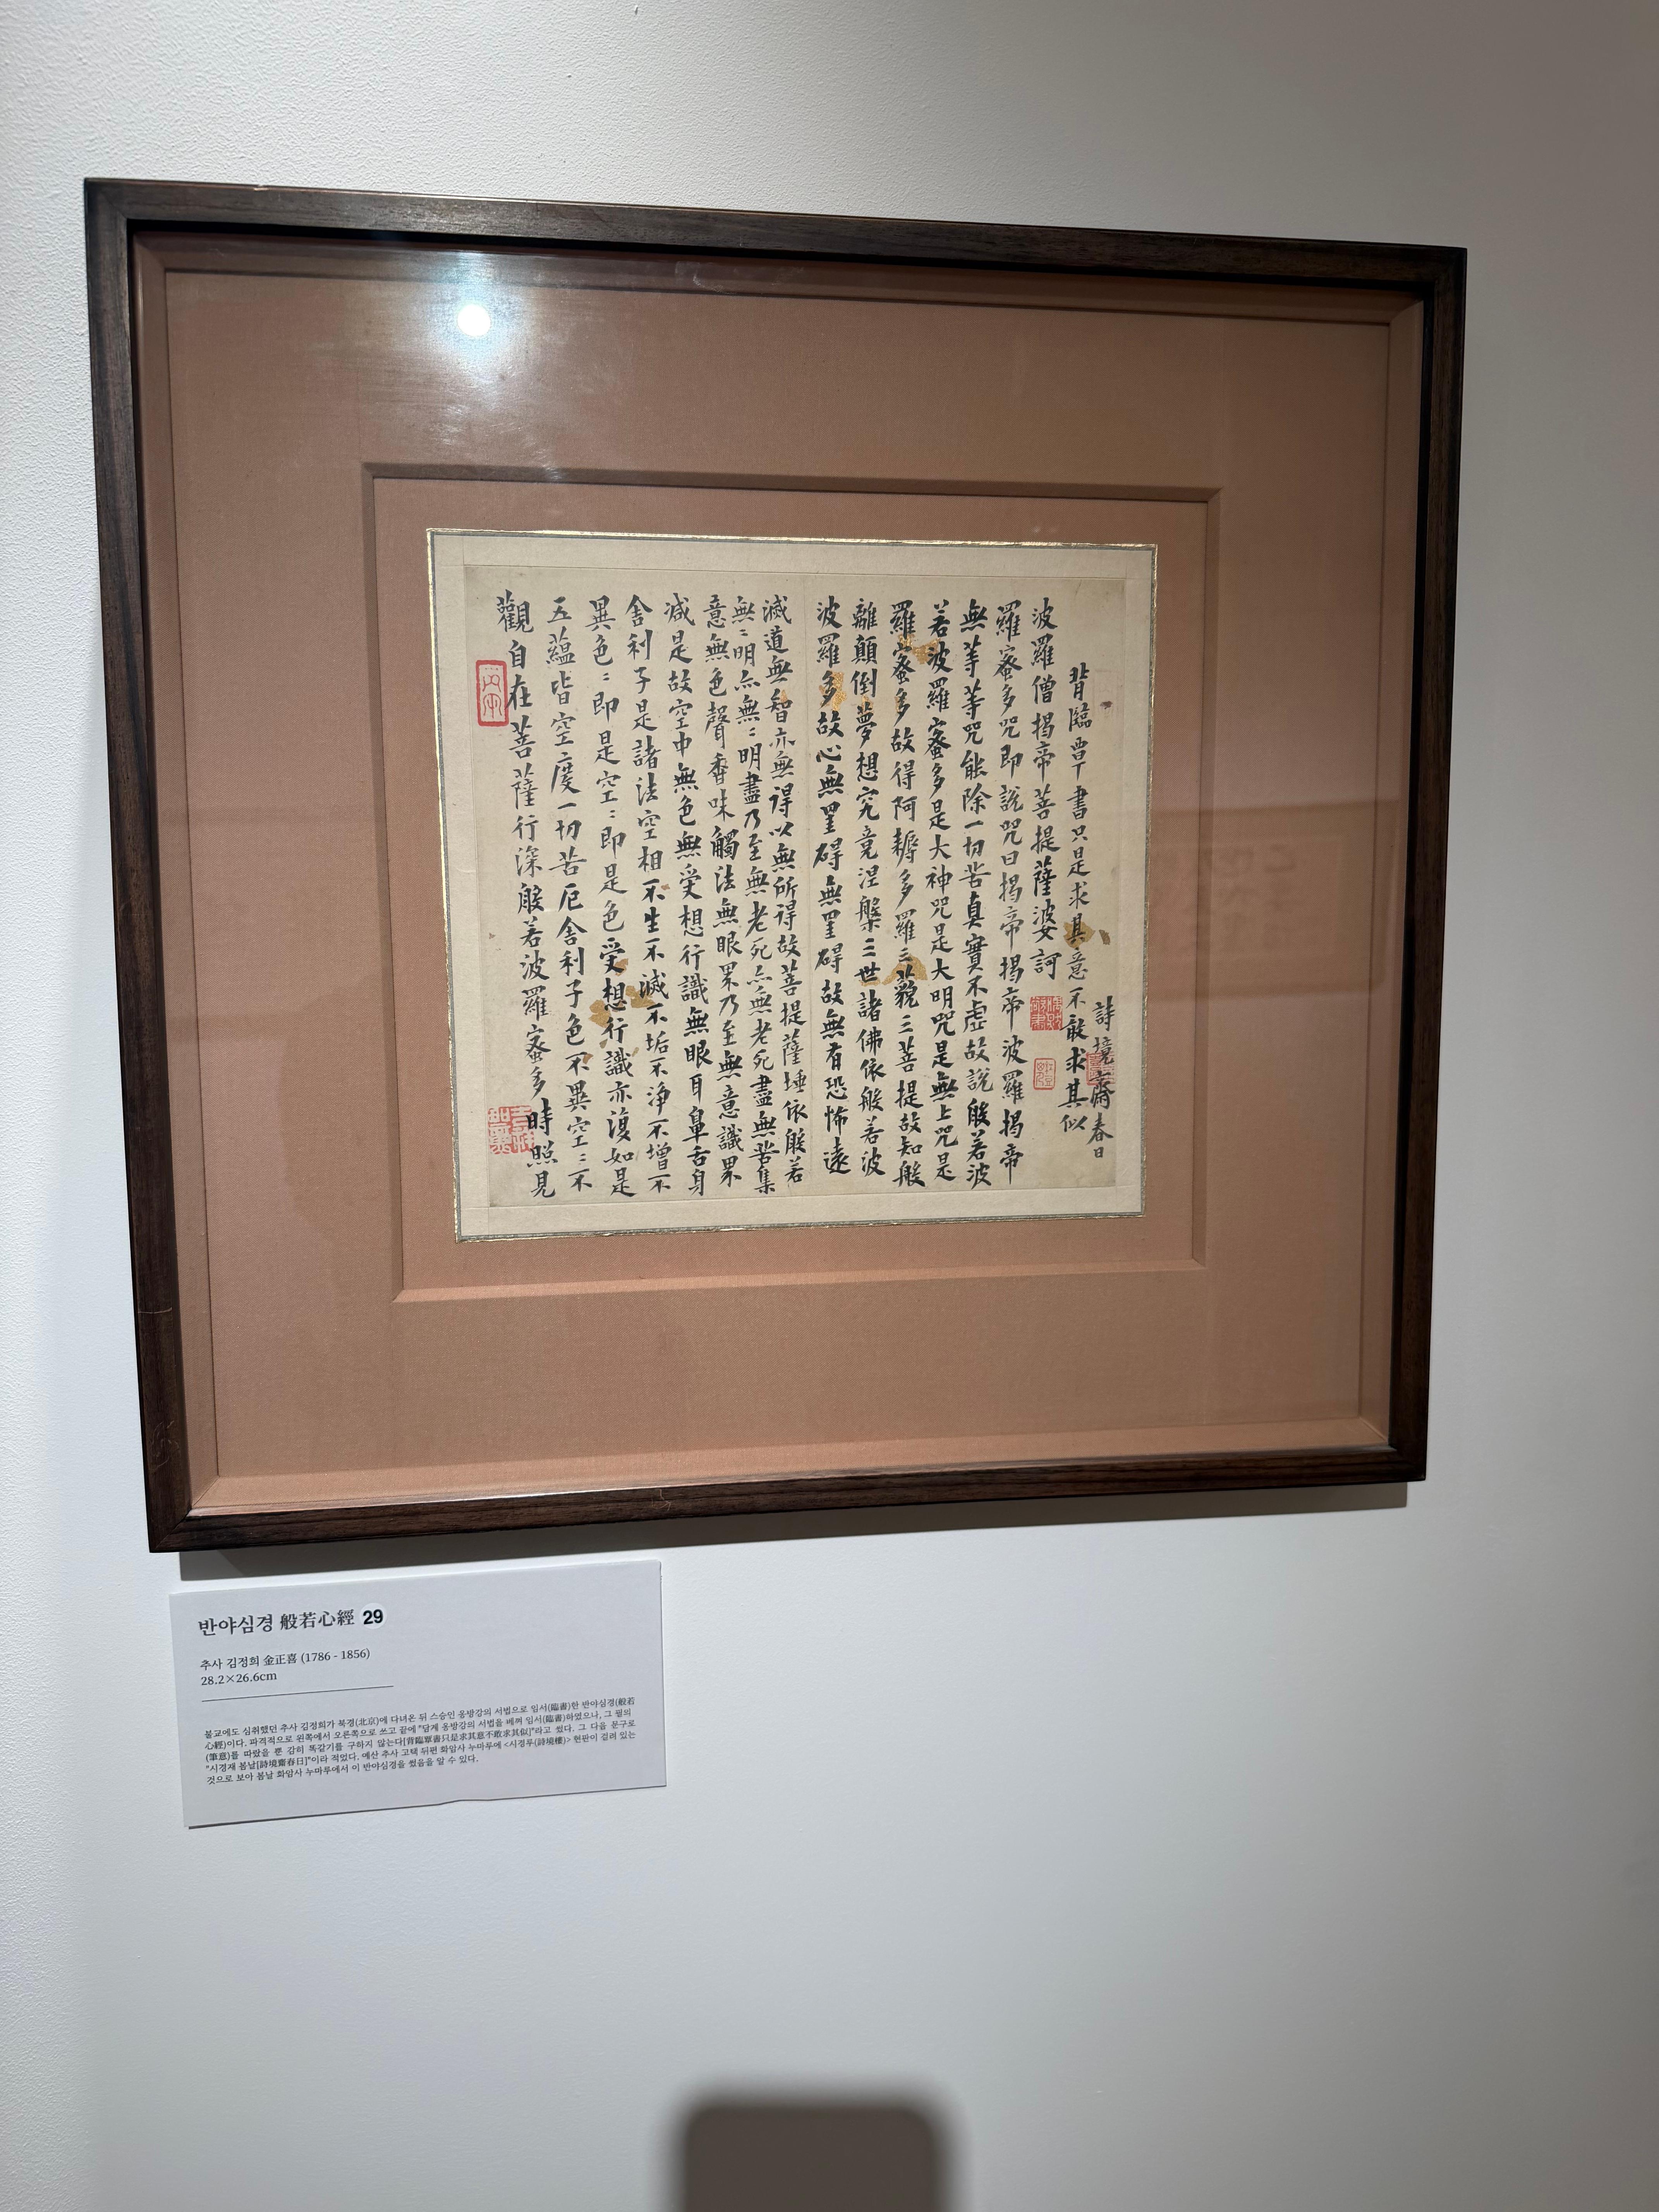 觀自在菩薩行深般若波羅蜜多時照見
五蘊皆空度一切苦厄舍利子色不異空〻不
異色〻即是空〻即是色受想行識亦復如是
舍利子是諸法空相不生不滅不垢不淨不增不
減是故空中無色無受想行識無眼耳鼻舌身
意無色聲香味觸法無眼界乃至無意識界
無〻明亦無〻明盡乃至無老死亦無老死盡無苦集
滅道無智亦無得以無所得故菩提薩埵依般若
波羅多故心無罣碍無罣碍故無有恐怖遠
離顛倒夢想究竟涅槃三世諸佛依般若波
羅蜜多故得阿耨多羅三藐三菩提故知般
若波羅蜜多是大神咒是大明咒是無上咒是
無等等咒能除一切苦真實不虛故說般若波
羅蜜多咒即說咒曰揭帝揭帝波羅揭帝
波羅僧揭帝菩提薩婆訶
背臨覃書只是求其意不敢求其似
詩境齋春日
반야심경 般若心經 29
추사 김정희 金正喜 (1786 - 1856)
28.2×26.6cm
불교에도 심취했던 추사 김정희가 북경(北京)에 다녀온 뒤 스승인 옹방강의 서법으로 임서(臨書)한 반야심경(般若
心經)이다. 파격적으로 왼쪽에서 오른쪽으로 쓰고 끝에 "담계 옹방강의 서법을 베껴 임서(臨書)하였으나, 그 필의
(筆意)를 따랐을 뿐 감히 똑같기를 구하지 않는다[背臨覃書只是求其意不敢求其似]"라고 썼다. 그 다음 문구로
"시경재 봄날[詩境齋春日]"이라 적었다. 예산 추사 고택 뒤편 화암사 누마루에 <시경루(詩境樓)> 현판이 걸려 있는
것으로 보아 봄날 화암사 누마루에서 이 반야심경을 썼음을 알 수 있다.